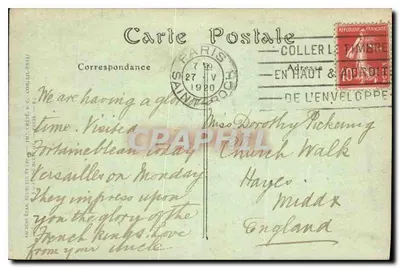 Carte Postale
Correspondance
Adresse
PARIS
27 V
1920
SAINT-ROCH
COLLER LE TIMBRE
EN HAUT & A DROITE
DE L'ENVELOPPE
40
We are having a
time. Visited
Fontainebleau today
Versailles on Monday
They impress upon
you the glory of the
French kings. Love
from your uncle.
Miss Dorothy Pickering
Church Walk
Hayes
Middx
England
CPArama.com